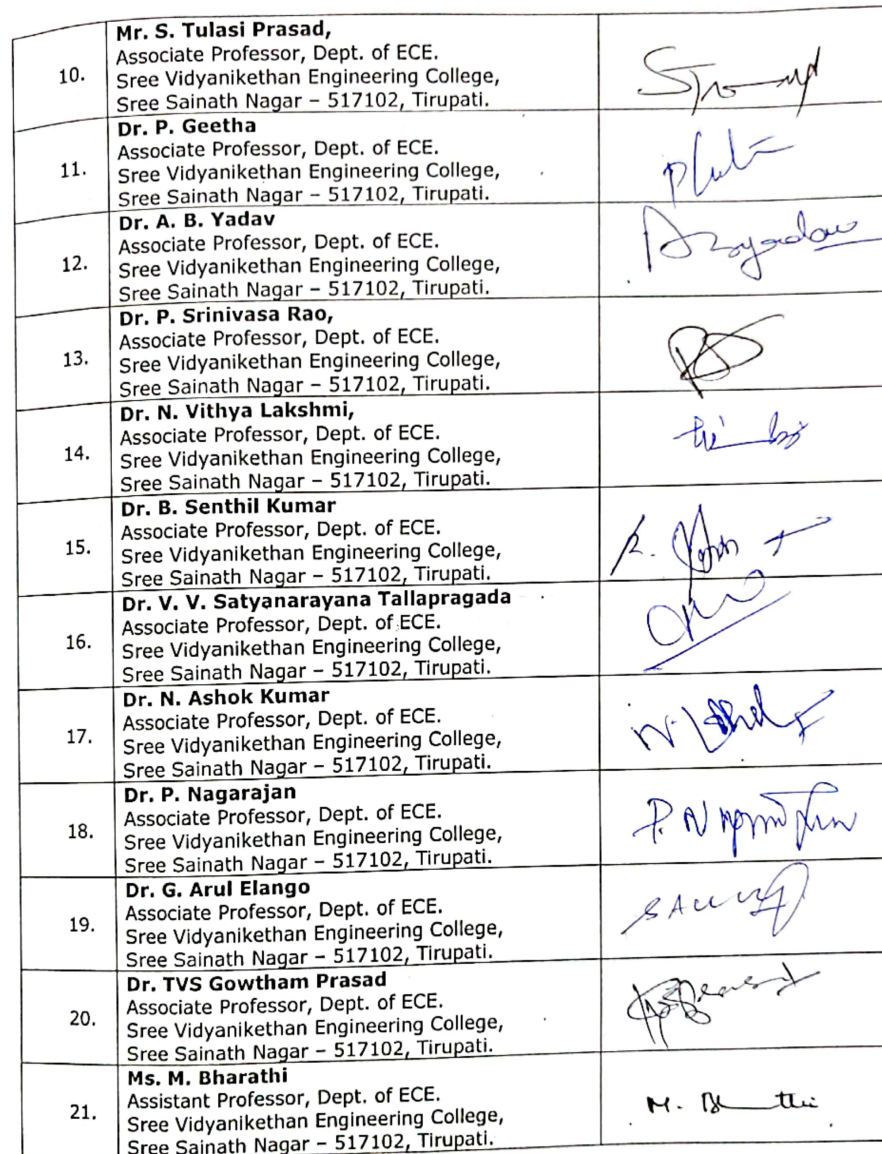 10.
Mr. S. Tulasi Prasad,
Associate Professor, Dept. of ECE.
Sree Vidyanikethan Engineering College,
Sree Sainath Nagar – 517102, Tirupati.
11.
Dr. P. Geetha
Associate Professor, Dept. of ECE.
Sree Vidyanikethan Engineering College,
Sree Sainath Nagar – 517102, Tirupati.
12.
Dr. A. B. Yadav
Associate Professor, Dept. of ECE.
Sree Vidyanikethan Engineering College,
Sree Sainath Nagar – 517102, Tirupati.
13.
Dr. P. Srinivasa Rao,
Associate Professor, Dept. of ECE.
Sree Vidyanikethan Engineering College,
Sree Sainath Nagar – 517102, Tirupati.
14.
Dr. N. Vithya Lakshmi,
Associate Professor, Dept. of ECE.
Sree Vidyanikethan Engineering College,
Sree Sainath Nagar – 517102, Tirupati.
15.
Dr. B. Senthil Kumar
Associate Professor, Dept. of ECE.
Sree Vidyanikethan Engineering College,
Sree Sainath Nagar – 517102, Tirupati.
16.
Dr. V. V. Satyanarayana Tallapragada
Associate Professor, Dept. of ECE.
Sree Vidyanikethan Engineering College,
Sree Sainath Nagar – 517102, Tirupati.
17.
Dr. N. Ashok Kumar
Associate Professor, Dept. of ECE.
Sree Vidyanikethan Engineering College,
Sree Sainath Nagar – 517102, Tirupati.
18.
Dr. P. Nagarajan
Associate Professor, Dept. of ECE.
Sree Vidyanikethan Engineering College,
Sree Sainath Nagar – 517102, Tirupati.
19.
Dr. G. Arul Elango
Associate Professor, Dept. of ECE.
Sree Vidyanikethan Engineering College,
Sree Sainath Nagar – 517102, Tirupati.
20.
Dr. TVS Gowtham Prasad
Associate Professor, Dept. of ECE.
Sree Vidyanikethan Engineering College,
Sree Sainath Nagar – 517102, Tirupati.
21.
Ms. M. Bharathi
Assistant Professor, Dept. of ECE.
Sree Vidyanikethan Engineering College,
Sree Sainath Nagar – 517102, Tirupati.